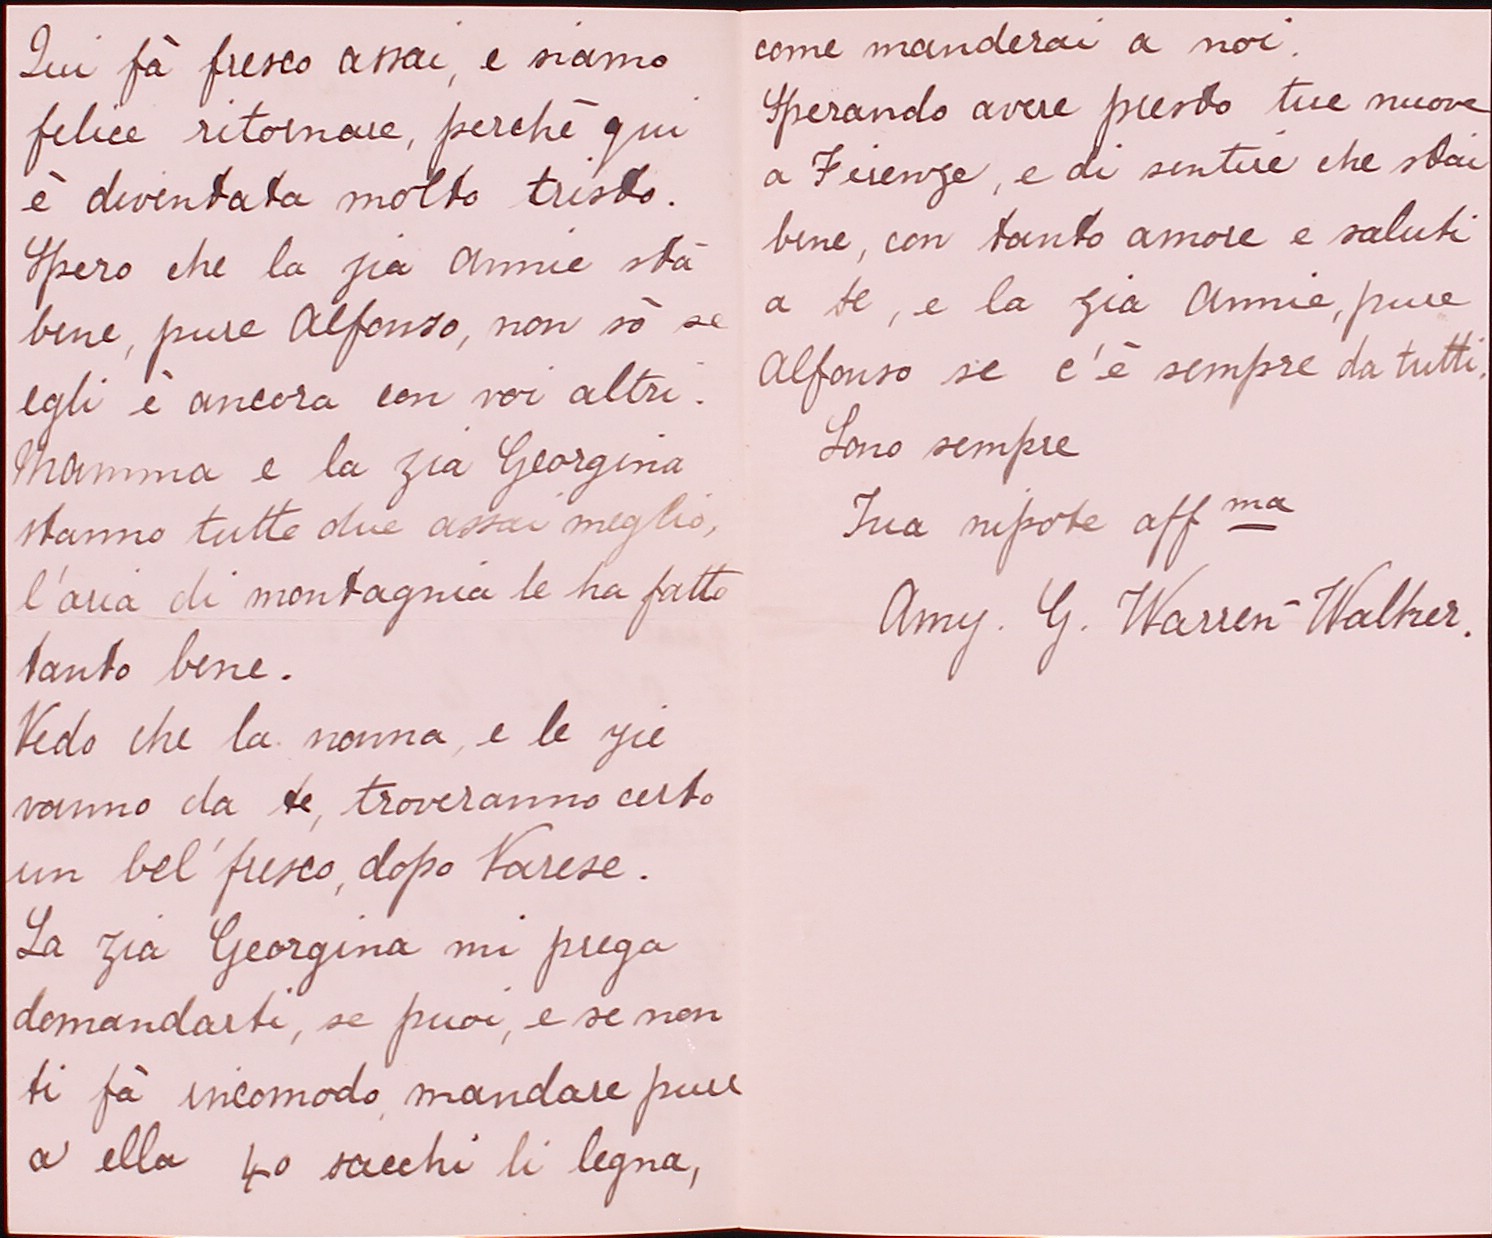 Qui fà fresco assai, e siamo
felice ritornare, perchè qui
è diventata molto tristo.
Spero che la zia Annie stà
bene, pure Alfonso, non sò se
egli è ancora con voi altri.
Mamma e la zia Georgina
stanno tutte due assai meglio,
l'aria di montagnia le ha fatto
tanto bene.
Vedo che la nonna, e le zie
vanno da te, troveranno certo
un bel' fresco, dopo Varese.
La zia Georgina mi prega
domandarti, se puoi, e se non
ti fà incomodo, mandare pure
a ella 40 sacchi li legna,
come manderai a noi.
Sperando avere presto tue nuove
a Firenze, e di sentire che stai
bene, con tanto amore e saluti
a te, e la zia Annie, pure
Alfonso se c'è sempre da tutti.
Sono sempre
Tua nipote aff ma
Amy. G. Warren-Walker.